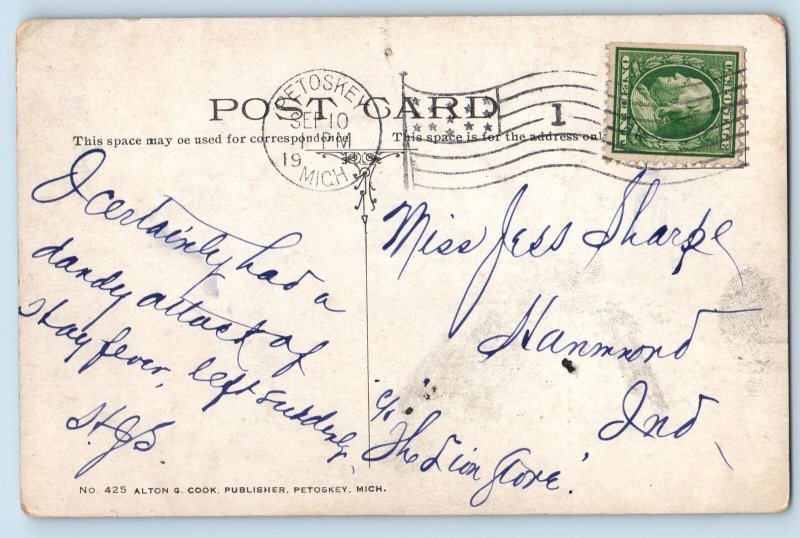 POST CARD
This space may be used for correspondence
This space is for the address only
PETOSKEY
SEP 10
PM
19
MICH
1
U.S. POSTAGE
ONE CENT
I certainly had a
dandy attack of
Hay fever,
left suddenly,
H.G.S.
Miss Jess Sharpe
Hammond
Ind
c/o "The Lion Store".
No. 425 ALTON G. COOK, PUBLISHER, PETOSKEY, MICH.